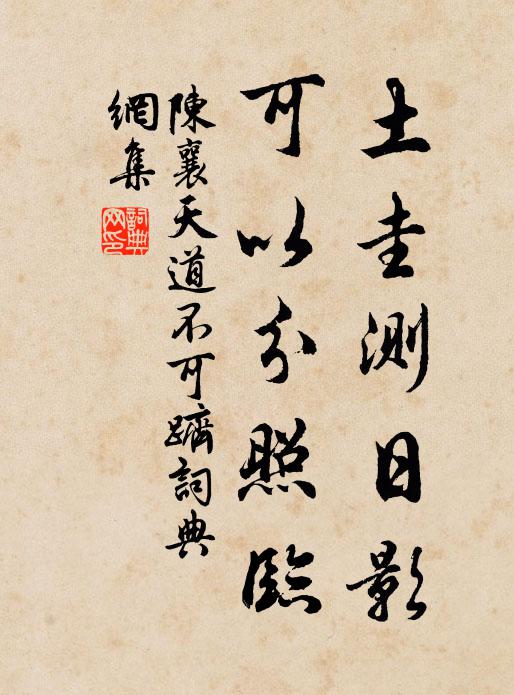 土圭測日影
可以分照臨
陳襄天道不可躋詞典
網集
詞典
网印